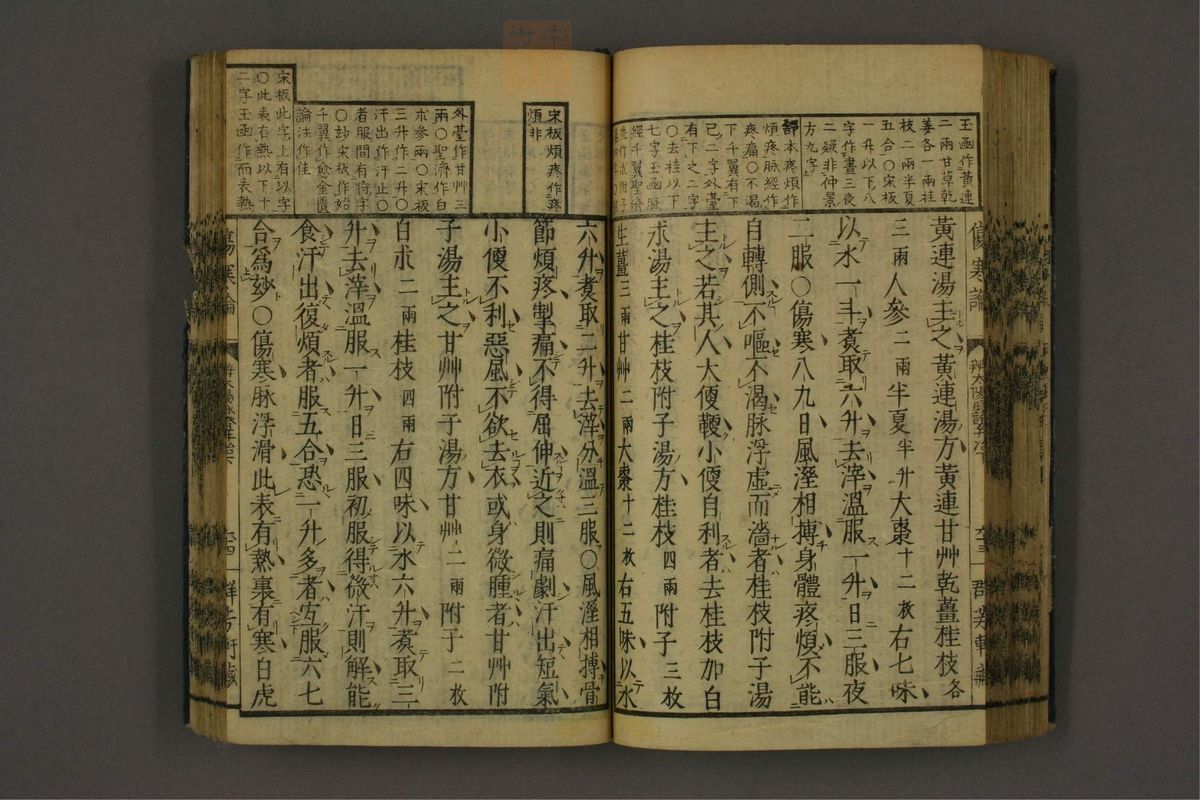 玉函作黄連
二兩甘草乾
姜各一兩桂
枝二兩半夏
五合○宋板
一升以下八
字作晝三夜
二疑非仲景
方九字
本疼煩作
煩疼脉經作
疼痛○不渴
下千翼有下
已二字外臺
有下之二字
○去桂以下
七字玉函脉
經千翼聖濟
並作求附子
傷寒論
黃連湯主之黃連湯方黃連甘艸乾薑桂枝各
三兩人參二兩半夏半升大棗十二枚右七味
以水一斗煑取六升去滓溫服一升日三服夜
二服○傷寒八九日風溼相搏身體疼煩不能
自轉側不嘔不渴脉浮虛而濇者桂枝附子湯
主之若其人大便鞕小便自利者去桂枝加白
朮湯主之桂枝附子湯方桂枝四兩附子三枚
生薑三兩甘艸二兩大棗十二枚右五味以水
宋板煩疼作疼
煩非
外臺作甘艸三
兩○聖濟作白
朮參兩○宋板
三升作二升○
汗出作汗止○
者服間有將字
○玅宋板作始
千翼作愈金匱
論注作佳
宋板此字上有以字
○此表有熱以下十
二字玉函作而表熱
六升煑取二升去滓分溫三服○風溼相搏骨
節煩疼掣痛不得屈伸近之則痛劇汗出短氣
小便不利惡風不欲去衣或身微腫者甘艸附
子湯主之甘艸附子湯方甘艸二兩附子二枚
白朮二兩桂枝四兩右四味以水六升煑取三
升去滓溫服一升日三服初服得微汗則解能
食汗出復煩者服五合恐一升多者宜服六七
合為玅○傷寒脉浮滑此表有熱裏有寒白虎
傷寒論